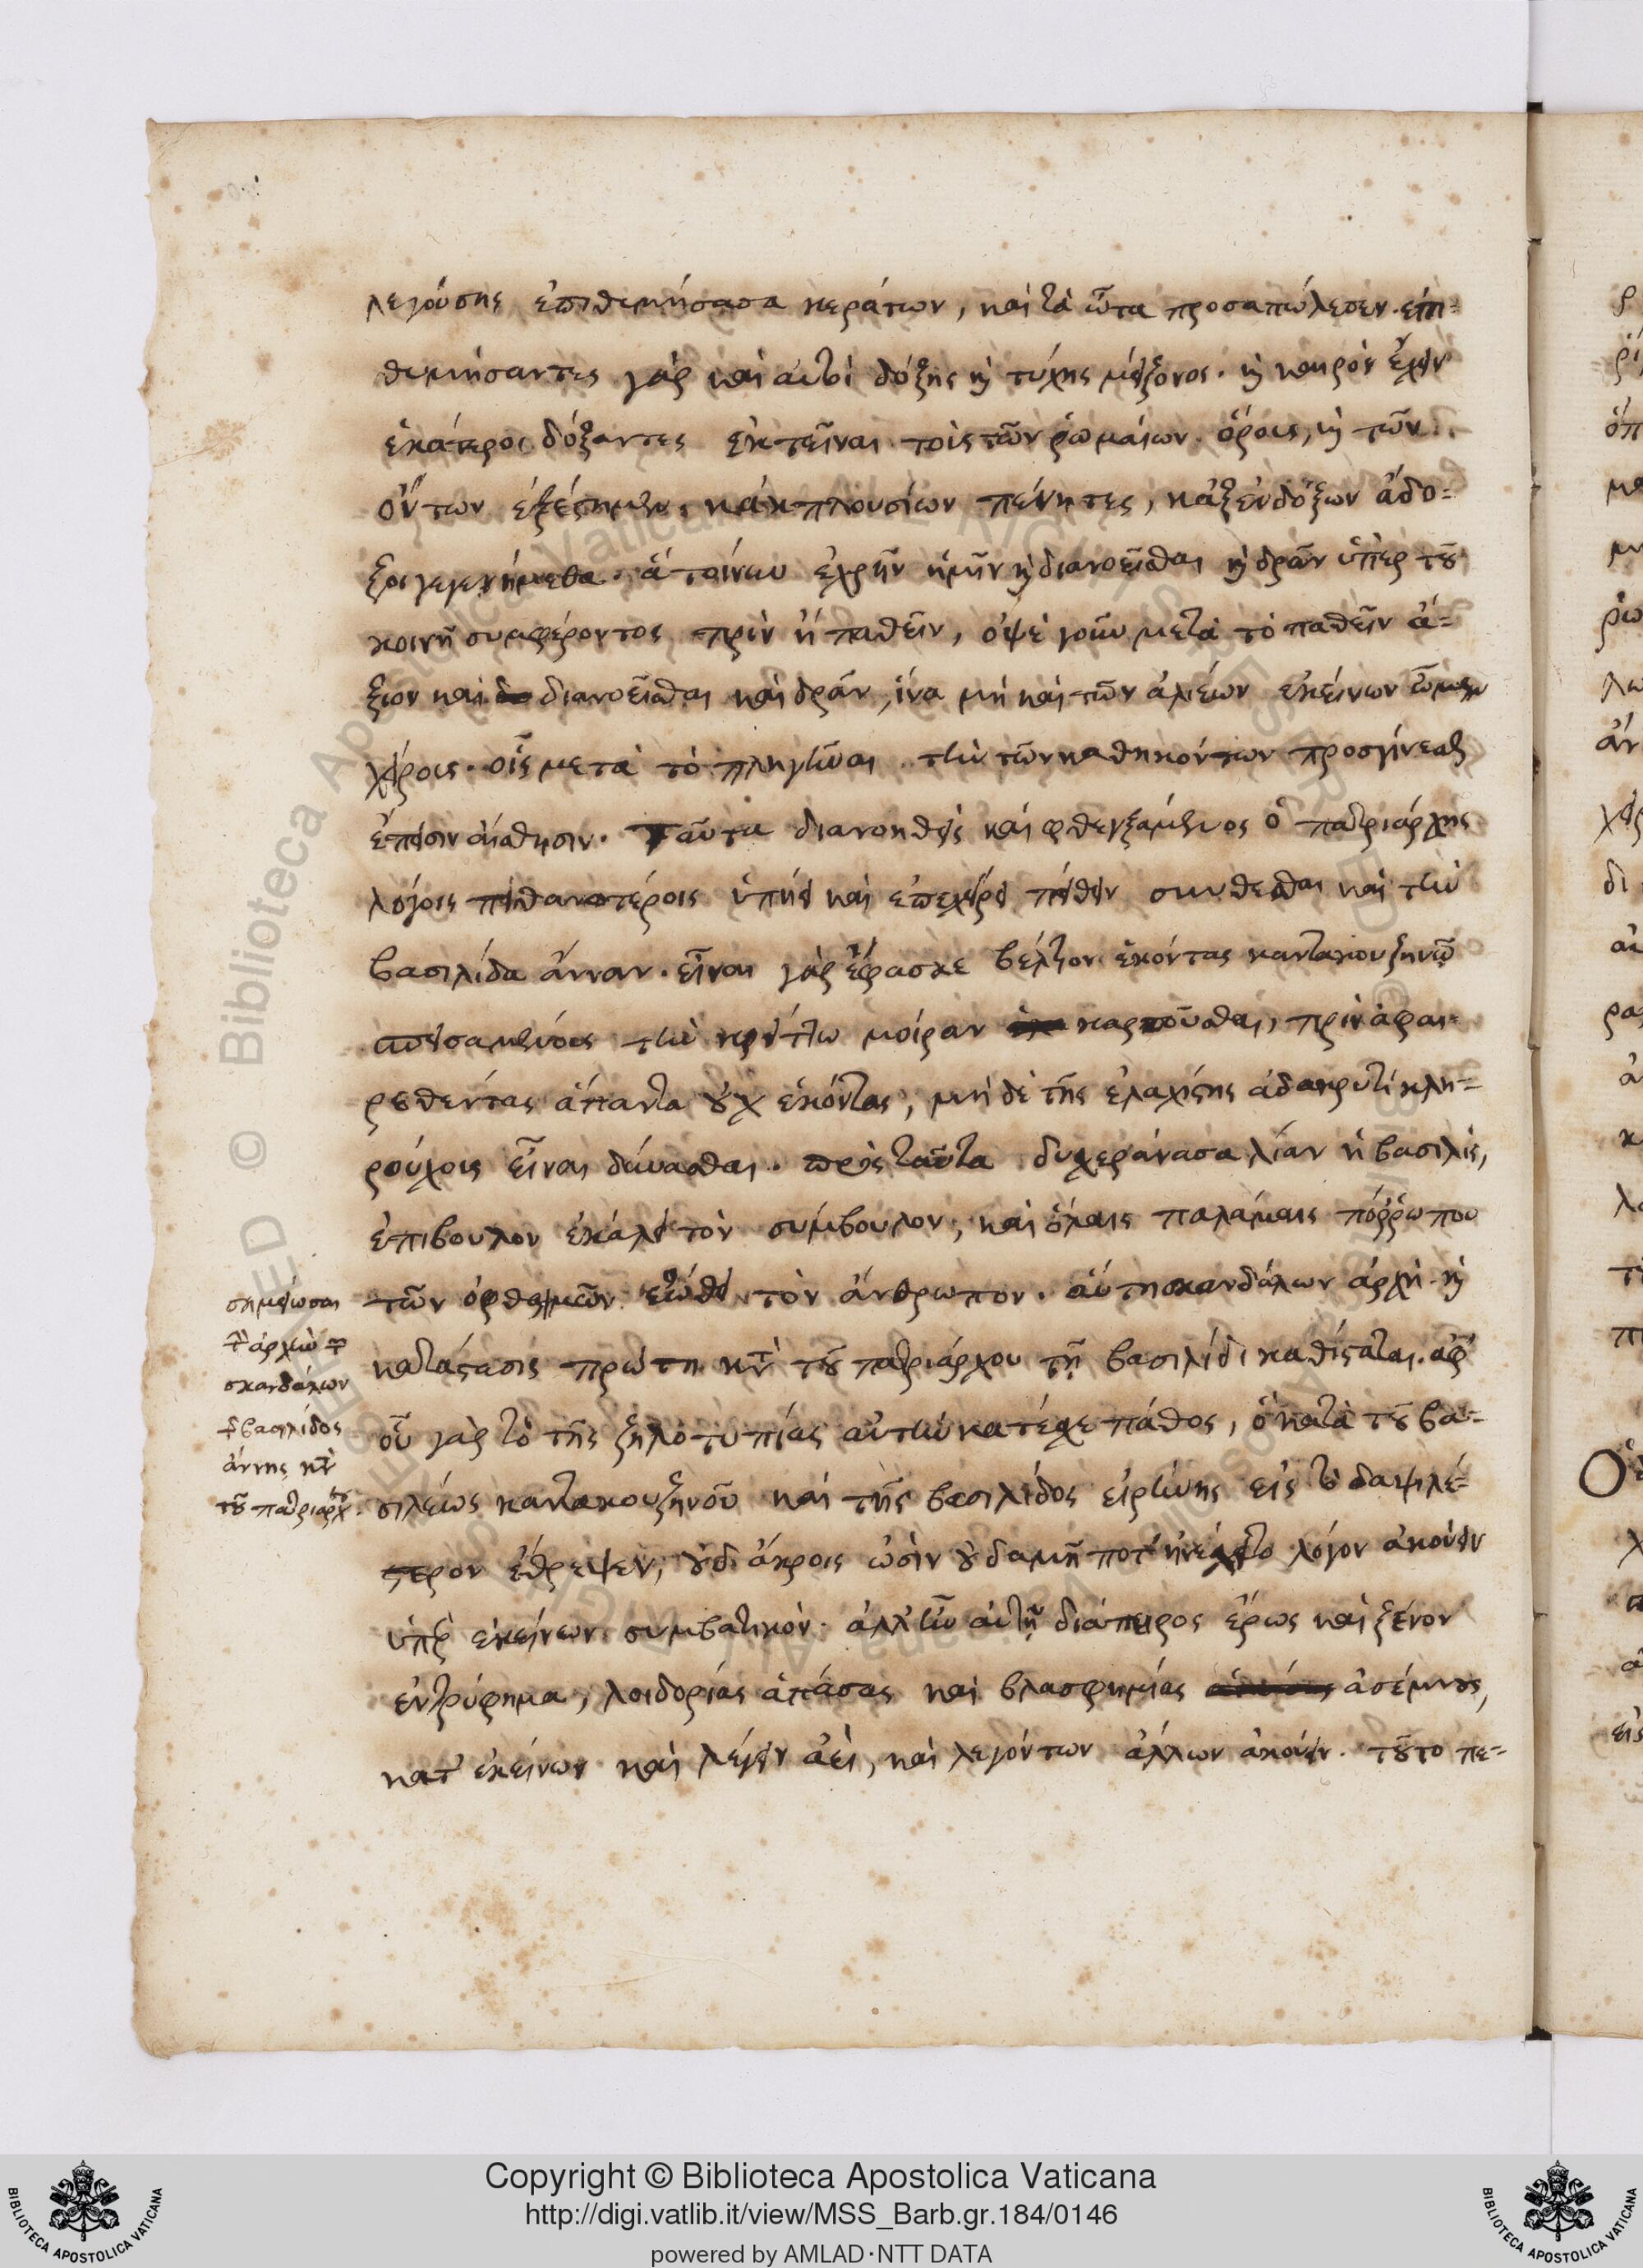 λεγούσης ἐπιθυμήσασα κεράτων, καὶ τὰ ὦτα προσαπώλεσεν. ἐπι-
θυμήσαντες γὰρ καὶ αὐτοὶ δόξης καὶ τύχης μείζονος. καὶ καιρὸν ἔχειν
ἑκάτεροι δόξαντες ἐκτεῖναι τοὺς τῶν ῥωμαίων ὅρους, καὶ τῶν
ὄντων ἐξέστημεν. κἀκ πλουσίων πένητες, κἀξ ἐνδόξων ἄδο-
ξοι γεγενήμεθα. ἃ τοίνυν ἐχρῆν ἡμῖν καὶ διανοεῖσθαι καὶ δρᾶν ὑπὲρ τοῦ
κοινῇ συμφέροντος πρὶν ἢ παθεῖν, ὀψὲ γοῦν μετὰ τὸ παθεῖν ἄ-
ξιον καὶ διανοεῖσθαι καὶ δρᾶν, ἵνα μὴ καὶ τῶν ἁλιέων ἐκείνων ὦμεν
χείρους. οἷς μετὰ τὸ πληγῆναι τὴν τῶν καθηκόντων προσγίνεσθαι
ἔπεισιν αἴσθησιν. Ταῦτα διανοηθεὶς καὶ φθεγξάμενος ὁ πατριάρχης
λόγοις πιθανωτέροις ὑπῄει καὶ ἐπεχείρει πείθειν συνθέσθαι καὶ τὴν
βασιλίδα ἄνναν. εἶναι γὰρ ἔφασκε βέλτιον ἑκόντας καντακουζηνῷ
σπεισαμένους τὴν κρείττω μοῖραν καρποῦσθαι, πρὶν ἀφαι-
ρεθέντας ἅπαντα οὐχ ἑκόντας, μηδὲ τῆς ἐλαχίστης ἀδακρυτὶ κλη-
ρούχους εἶναι δύνασθαι. πρὸς ταῦτα δυσχεράνασα λίαν ἡ βασιλὶς,
ἐπίβουλον ἐκάλει τὸν σύμβουλον, καὶ ὅλαις παλάμαις πόρρω που
τῶν ὀφθαλμῶν ἐώθει τὸν ἄνθρωπον. αὕτη σκανδάλων ἀρχὴ καὶ
κατάστασις πρώτη κατὰ τοῦ πατριάρχου τῇ βασιλίδι καθίσταται. ἀφ
οὗ γὰρ τὸ τῆς ζηλοτυπίας αὐτὴν κατέσχε πάθος, ὃ κατὰ τοῦ βα-
σιλέως καντακουζηνοῦ καὶ τῆς βασιλίδος εἰρήνης εἰς τὸ δαψιλέ-
στερον ἔθρεψεν, οὐδ ἄκροις ὠσὶν οὐδαμῇ ποτ ἠνέσχετο λόγον ἀκούειν
ὑπὲρ ἐκείνων συμβατικόν. ἀλλ ἦν αὐτῇ διάπυρος ἔρως καὶ ξένον
ἐντρύφημα, λοιδορίας ἁπάσας καὶ βλασφημίας ἀσέμνους,
κατ ἐκείνων καὶ λέγειν ἀεὶ, καὶ λεγόντων ἄλλων ἀκούειν. τοῦτο πε-
σημείωσαι
τὴν ἀρχὴν τῶν
σκανδάλων
τῆς βασιλίδος
ἄννης κατὰ
τοῦ πατριάρχου.
Copyright © Biblioteca Apostolica Vaticana
http://digi.vatlib.it/view/MSS_Barb.gr.184/0146
powered by AMLAD·NTT DATA
BIBLIOTECA APOSTOLICA VATICANA
BIBLIOTECA APOSTOLICA VATICANA